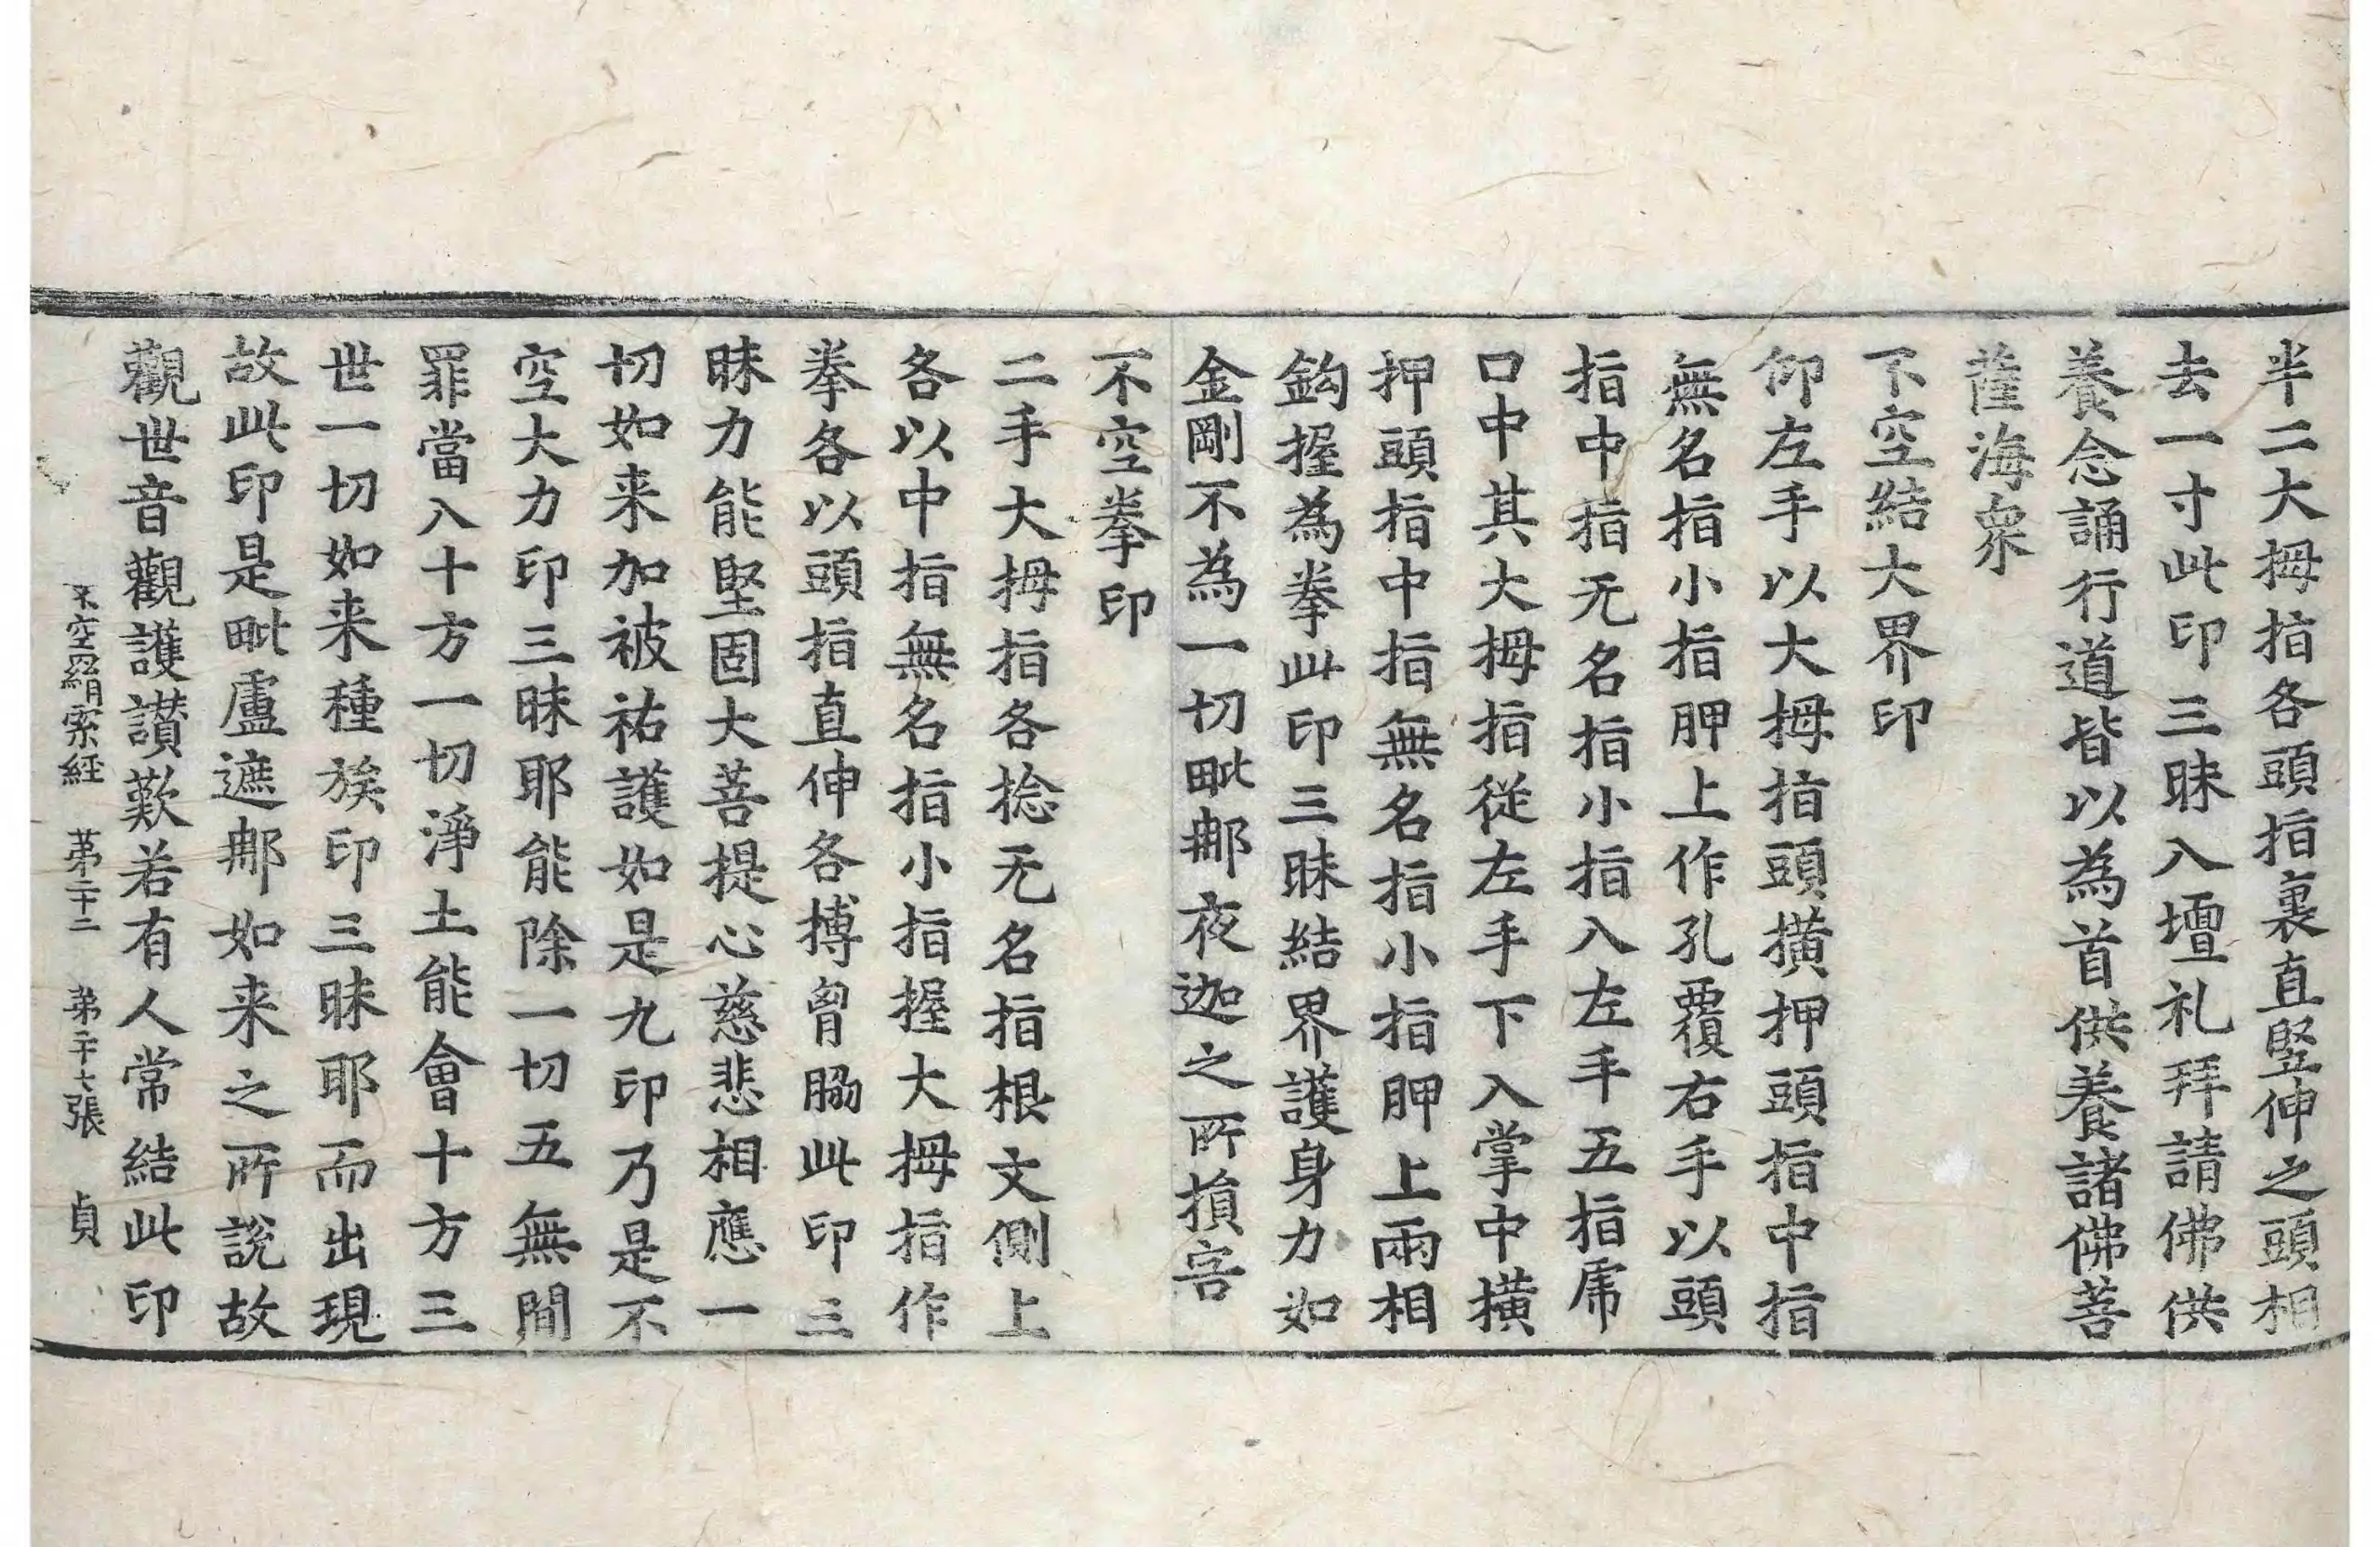 半二大拇指各頭指裏直竪伸之頭相
去一寸此印三昧入壇礼拜請佛供
養念誦行道皆以為首供養諸佛菩
薩海衆
下空結大界印
仰左手以大拇指頭撗押頭指中指
無名指小指胛上作孔覆右手以頭
指中指无名指小指入左手五指虎
口中其大拇指從左手下入掌中撗
押頭指中指無名指小指胛上兩相
鈎握為拳此印三昧結界護身力如
金剛不為一切毗那夜迦之所損害
不空拳印
二手大拇指各捻无名指根文側上
各以中指無名指小指握大拇指作
拳各以頭指直伸各搏胷脇此印三
昧力能堅固大菩提心慈悲相應一
切如来加被祐護如是九印乃是不
空大力印三昧耶能除一切五無間
罪當入十方一切淨土能會十方三
世一切如来種族印三昧耶而出現
故此印是毗盧遮那如来之所說故
觀世音觀護讃歎若有人常結此印
不空羂索経 苐二十二 苐二十七張 貞